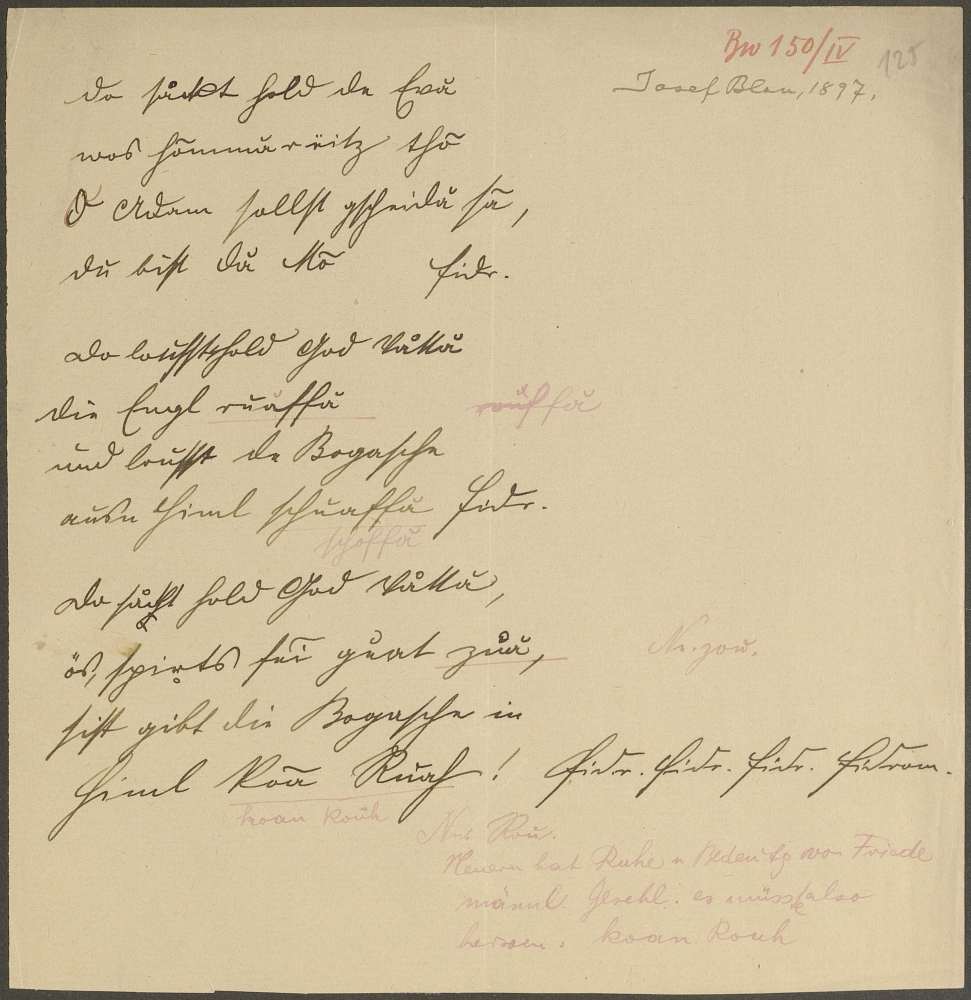 Bw 150/IV 125
Josef Blau, 1897.
do såckt hold de Evå
wos hōmmår ëitz thō
O Adam sollst gscheidå sā,
du bist då Mō fidr.
Do loußt hold God Våttå
die Engl ruåffå rouffå
und loußt de Bogasche
ausn Himl schuaffå fidr.
schoffå
Do såckt hold God Våttå,
ös, spirts fei guat zuå, Nr. zou.
sist gibt die Bogasche in
Himl koā Ruah! Fidr. Fidr. Fidr. Fidrom.
koan Rouh
Nr. Rou.
Neuern hat Ruhe in Bedeutg von Friede
männl. Geschl. es müsste also
heissen: koan Rouh